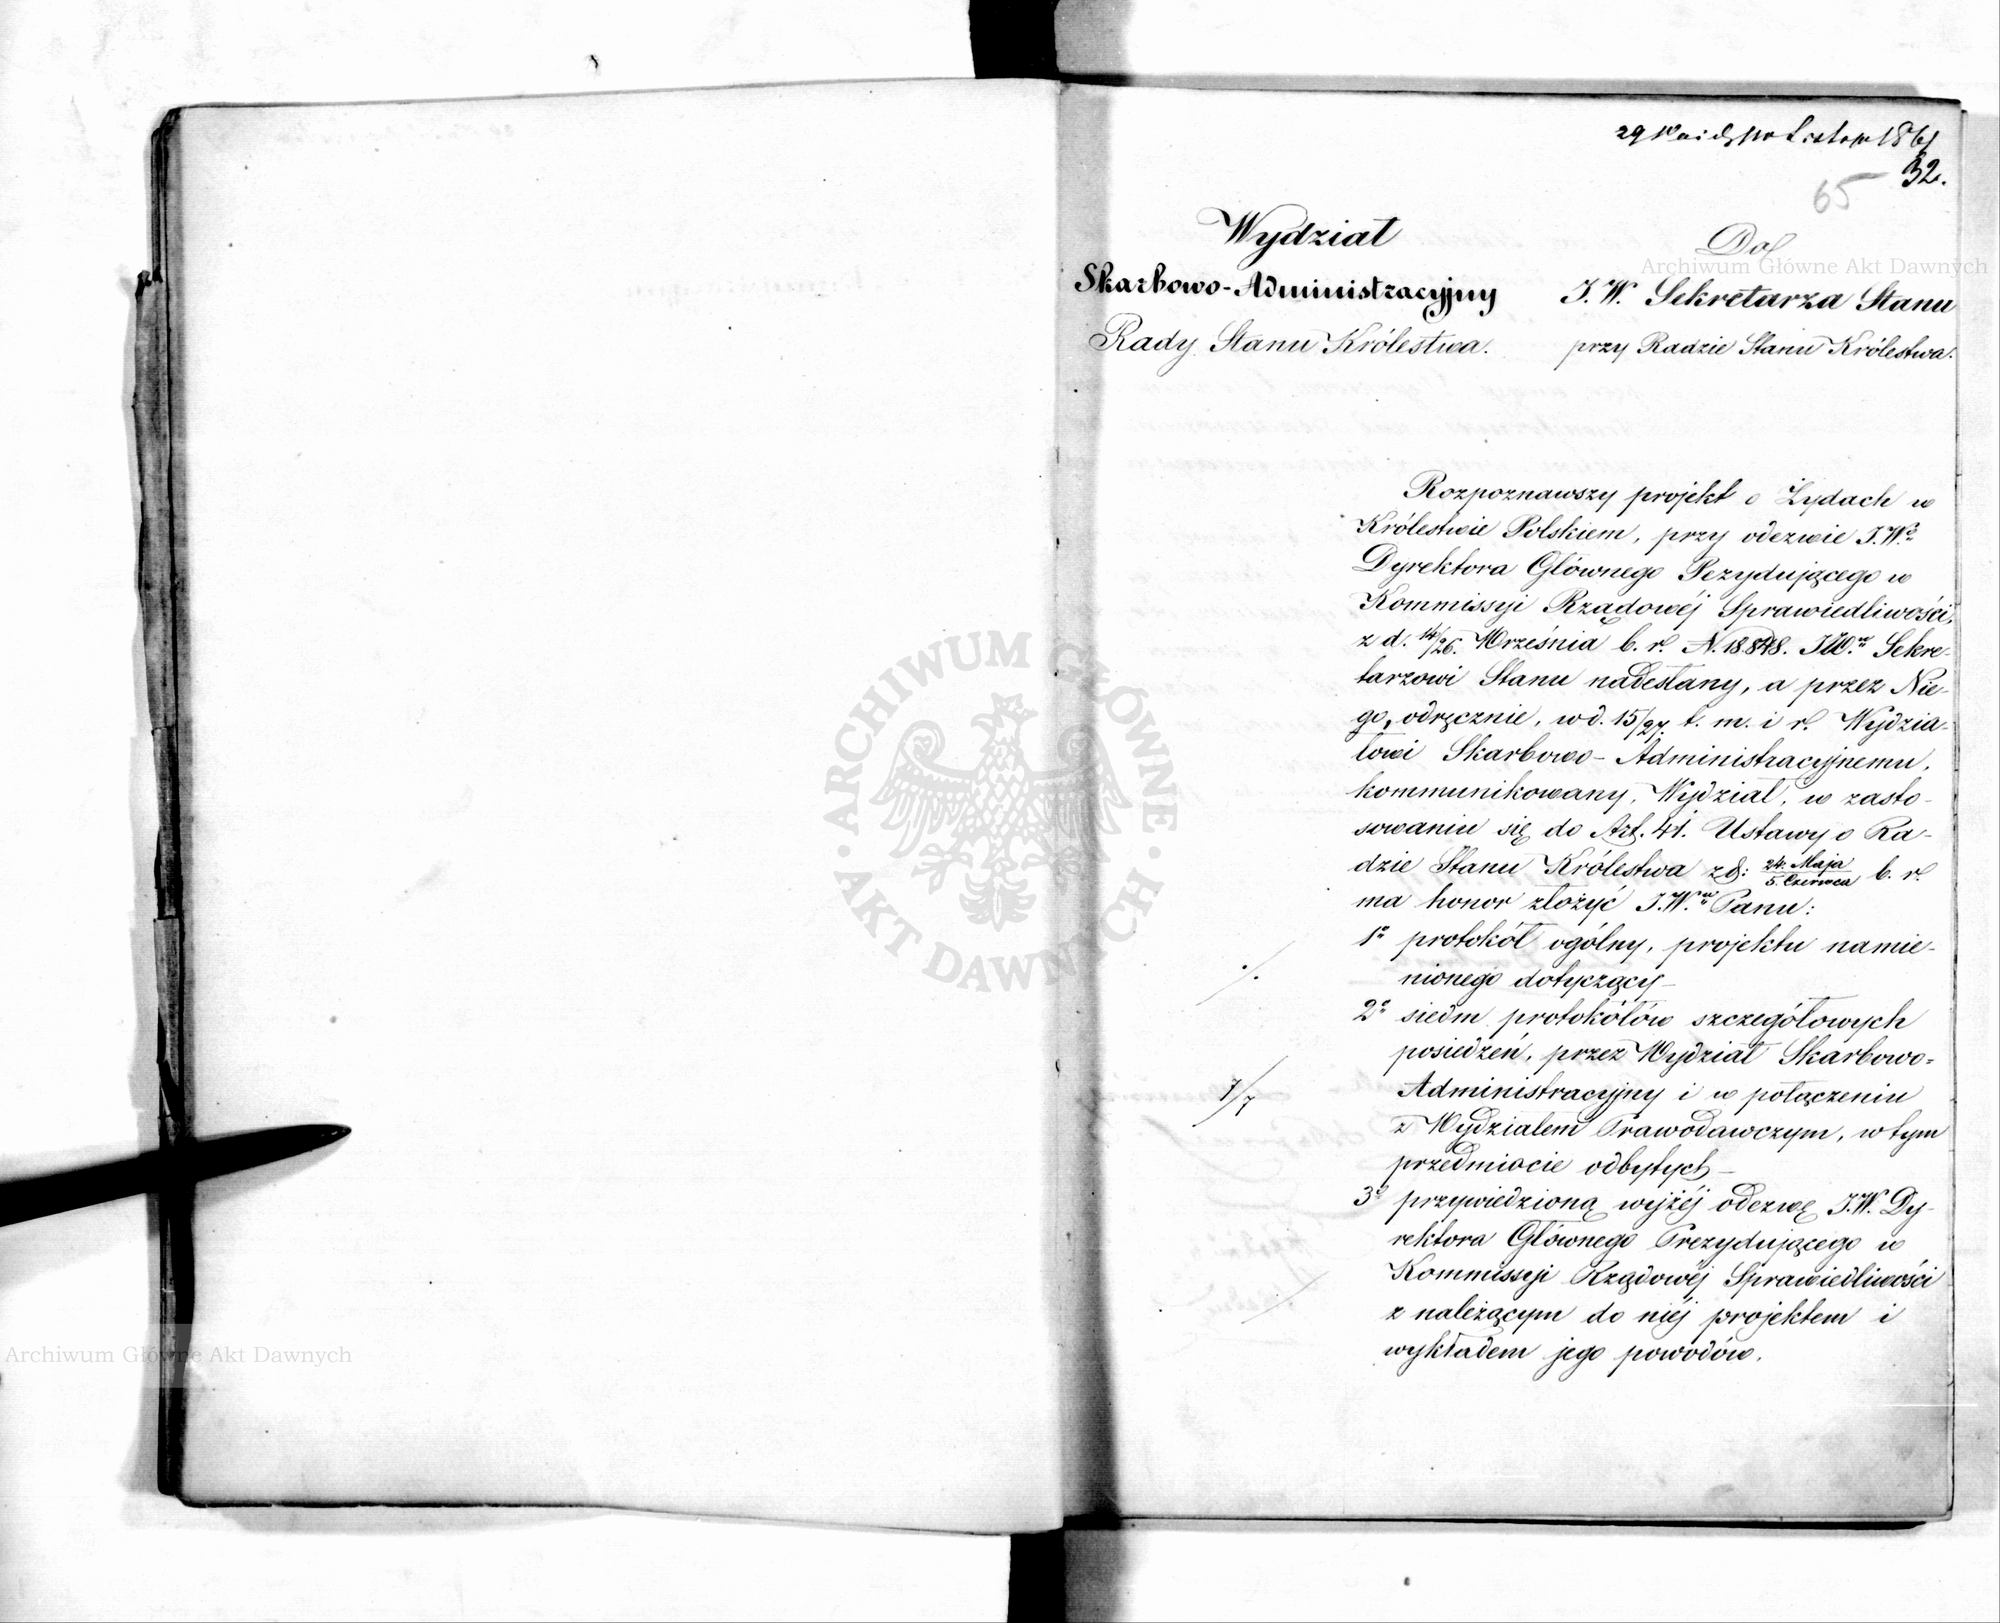 1861
32.
65
Wydział
Skarbowo-Administracyjny
Rady Stanu Królestwa.
Do
J. W. Sekretarza Stanu
przy Radzie Stanu Królestwa.
Rozpoznawszy projekt o Żydach w
Królestwie Polskiem, przy odezwie J.W.o
Dyrektora Głównego Prezydującego w
Kommissyi Rządowéj Sprawiedliwości,
z d. 14/26. Września b. r. N. 18.848. JW. Sekre-
tarzowi Stanu nadesłany, a przez Nie-
go, odręcznie, w d. 15/27. t. m. i r. Wydzia-
łowi Skarbowo-Administracyjnemu,
kommunikowany, Wydział, w zasto-
sowaniu się do Art. 41. Ustawy o Ra-
dzie Stanu Królestwa z d: 24. Maja/5. Czerwca b. r.
ma honor złożyć J.W.u Panu:
1o protokół ogólny, projektu namie-
nionego dotyczący-
./.
2o siedm protokółów szczegółowych
posiedzeń, przez Wydział Skarbowo-
Administracyjny i w połączeniu
7/7
z Wydziałem Prawodawczym, w tym
przedmiocie odbytych-
3o przywiedzioną wyżéj odezwę J.W. Dy-
rektora Głównego Prezydującego w
Kommissyi Rządowéj Sprawiedliwości
z należącym do niéj projektem i
wykładem jego powodów.
ARCHIWUM GŁÓWNE AKT DAWNYCH
Archiwum Główne Akt Dawnych
Archiwum Główne Akt Dawnych